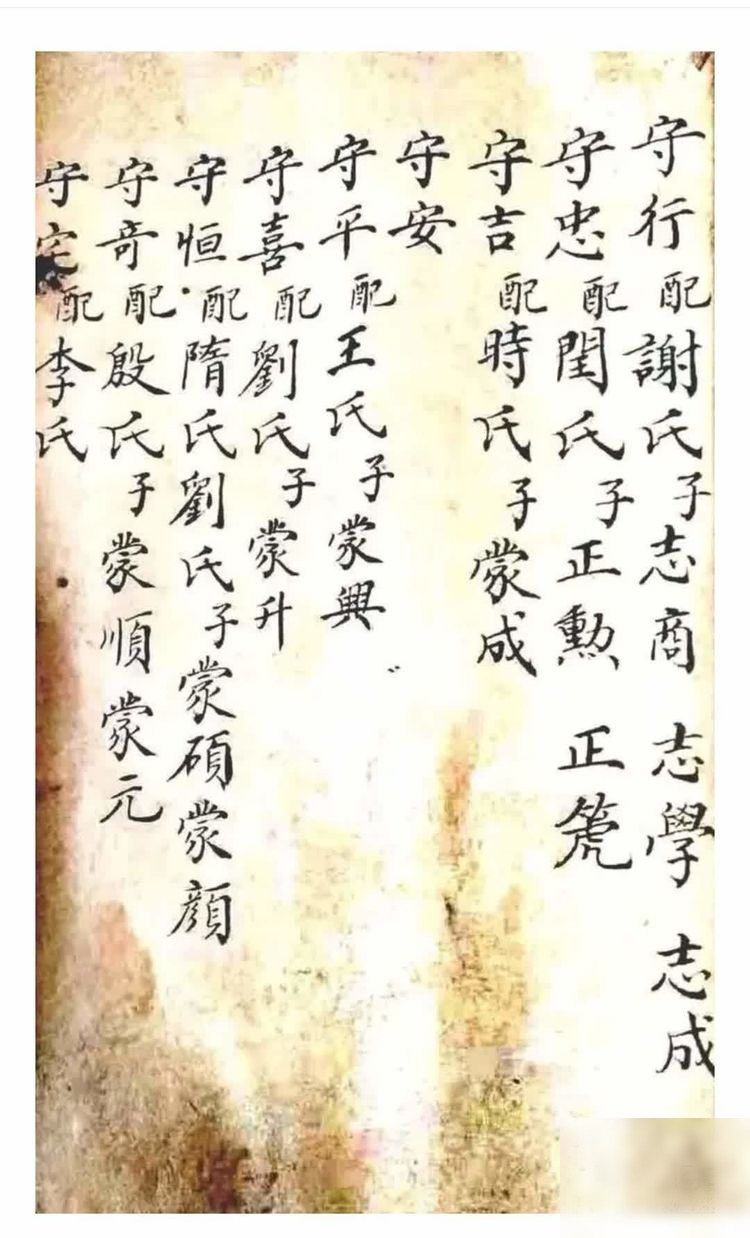 守行配謝氏子志商 志學 志成
守忠配閏氏子正勲 正箎
守吉配時氏子蒙成
守安
守平配王氏子蒙興
守喜配劉氏子蒙升
守恒配隋氏劉氏子蒙碩蒙顔
守奇配殷氏子蒙順蒙元
守宅配李氏